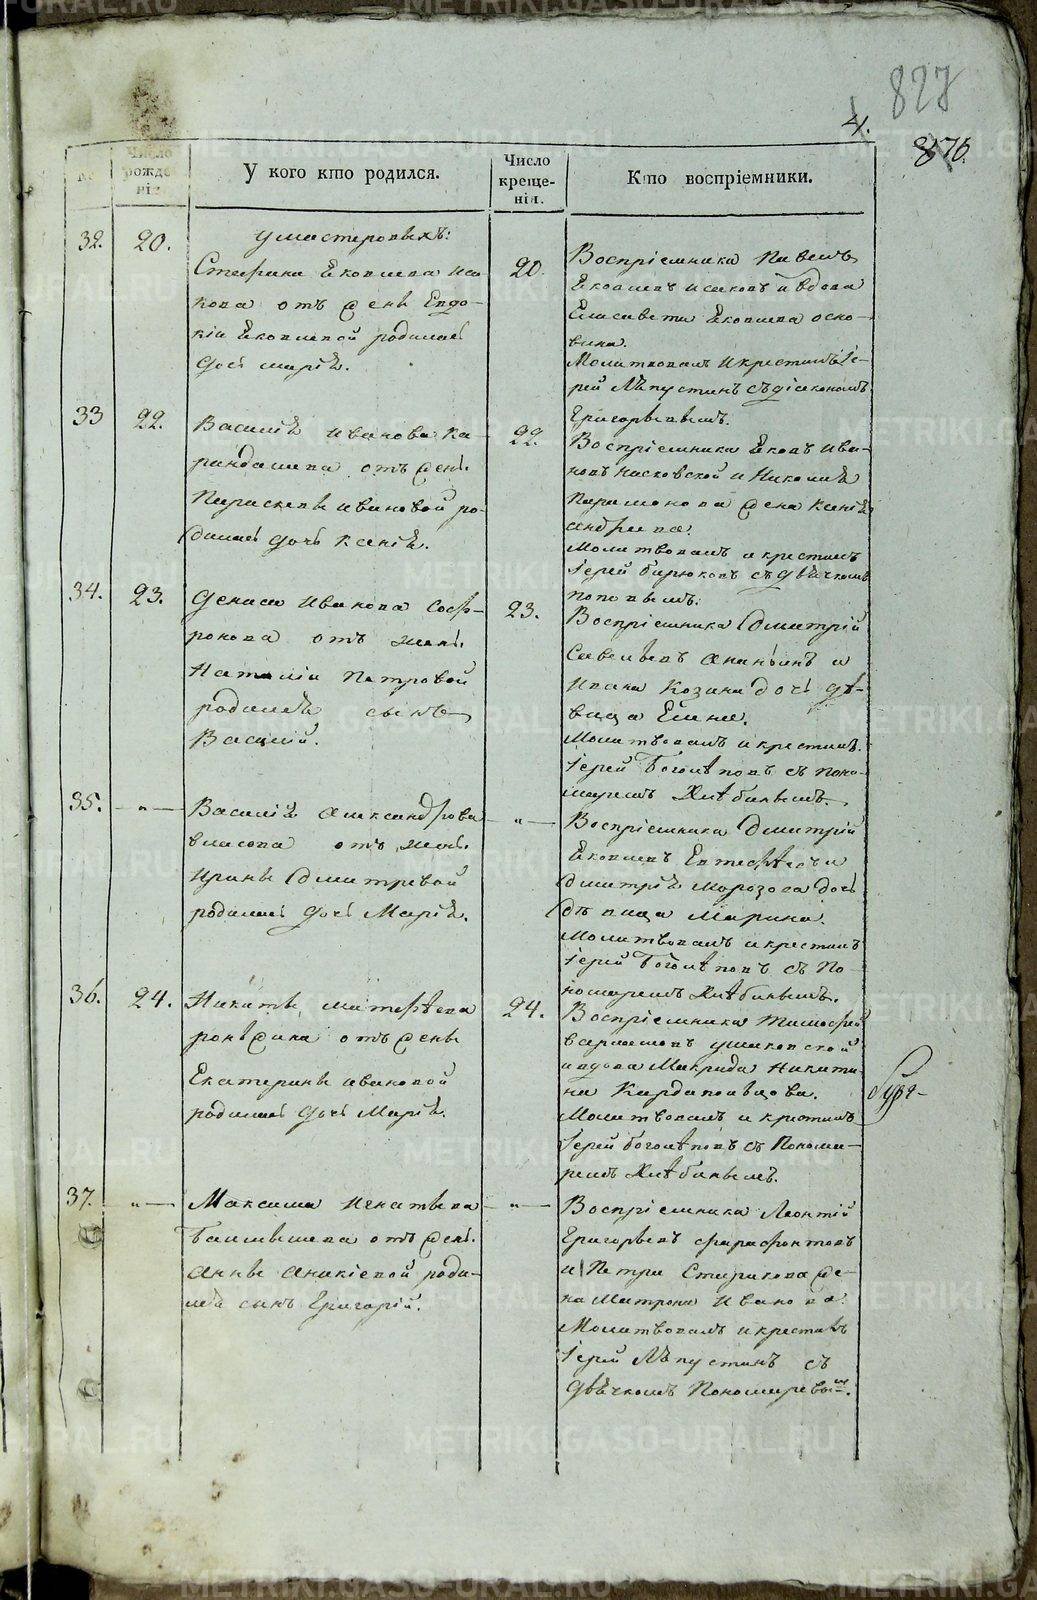 827
4.
876.
№
Число рожде-нія.
У кого кто родился.
Число креще-нія.
Кто воспріемники.
32.
20.
У мастеровыхъ:
Стефана Яковлева Иса
кова отъ жены Евдо-
кіи Яковлевой родилась
дочь Марія.
20.
Воспріемники Павелъ
Яковлевъ Исаковъ и вдова
Елисавета Яковлева Осно-
вина.
Молитвовалъ и крестилъ Іе-
рей Лѣпустинъ съ діакономъ
Григорьевымъ.
33
22.
Василія Иванова Ка-
рандашева отъ жены
Параскевы Ивановой ро-
дилась дочь Ксенія.
22.
Воспріемники Яковъ Ива-
новъ и Николая
Парамонова жена Ксенія
Андреева.
Молитвовалъ и крестилъ
Іерей Бирюковъ съ дьячкомъ
Поповымъ.
34.
23.
Дениса Иванова Соф-
ронова отъ жены
Наталіи Петровой
родился сынъ
Василій.
23.
Воспріемники Дмитрій
Савельевъ Ананьинъ и
Ивана Козина дочь дѣ-
вица Елена.
Молитвовалъ и крестилъ
Іерей Боголѣповъ съ поно-
маремъ Хлѣбинымъ.
35.
-"-
Василія Александрова
Власова отъ жены
Ирины Дмитревой
родилась дочь Марія.
-"-
Воспріемники Дмитрій
Яковлевъ и
Дмитрія Морозова дочь
дѣвица Марина.
Молитвовалъ и крестилъ
Іерей Боголѣповъ съ По-
номаремъ Хлѣбинымъ.
36.
24.
Никиты Матвѣева
отъ жены
Екатерины Ивановой
родилась дочь Марія.
24.
Воспріемники Тимофей
Варламовъ Ушаковской
и вдова Макрида Никити-
на Кардаполцова.
Молитвовалъ и крестилъ
Іерей Боголѣповъ съ Понома-
ремъ Хлѣбинымъ.
37.
-"-
Максима Игнатьева
отъ жены
Анны Аникіевой роди-
лся сынъ Григорій.
-"-
Воспріемники Леонтій
Григорьевъ Фарафонтовъ
и Петра Старикова же-
на Матрона Иванова.
Молитвовалъ и крестилъ
Іерей Лѣпустинъ съ
дьячкомъ Пономаревым.
METRIKI.GASO-URAL.RU